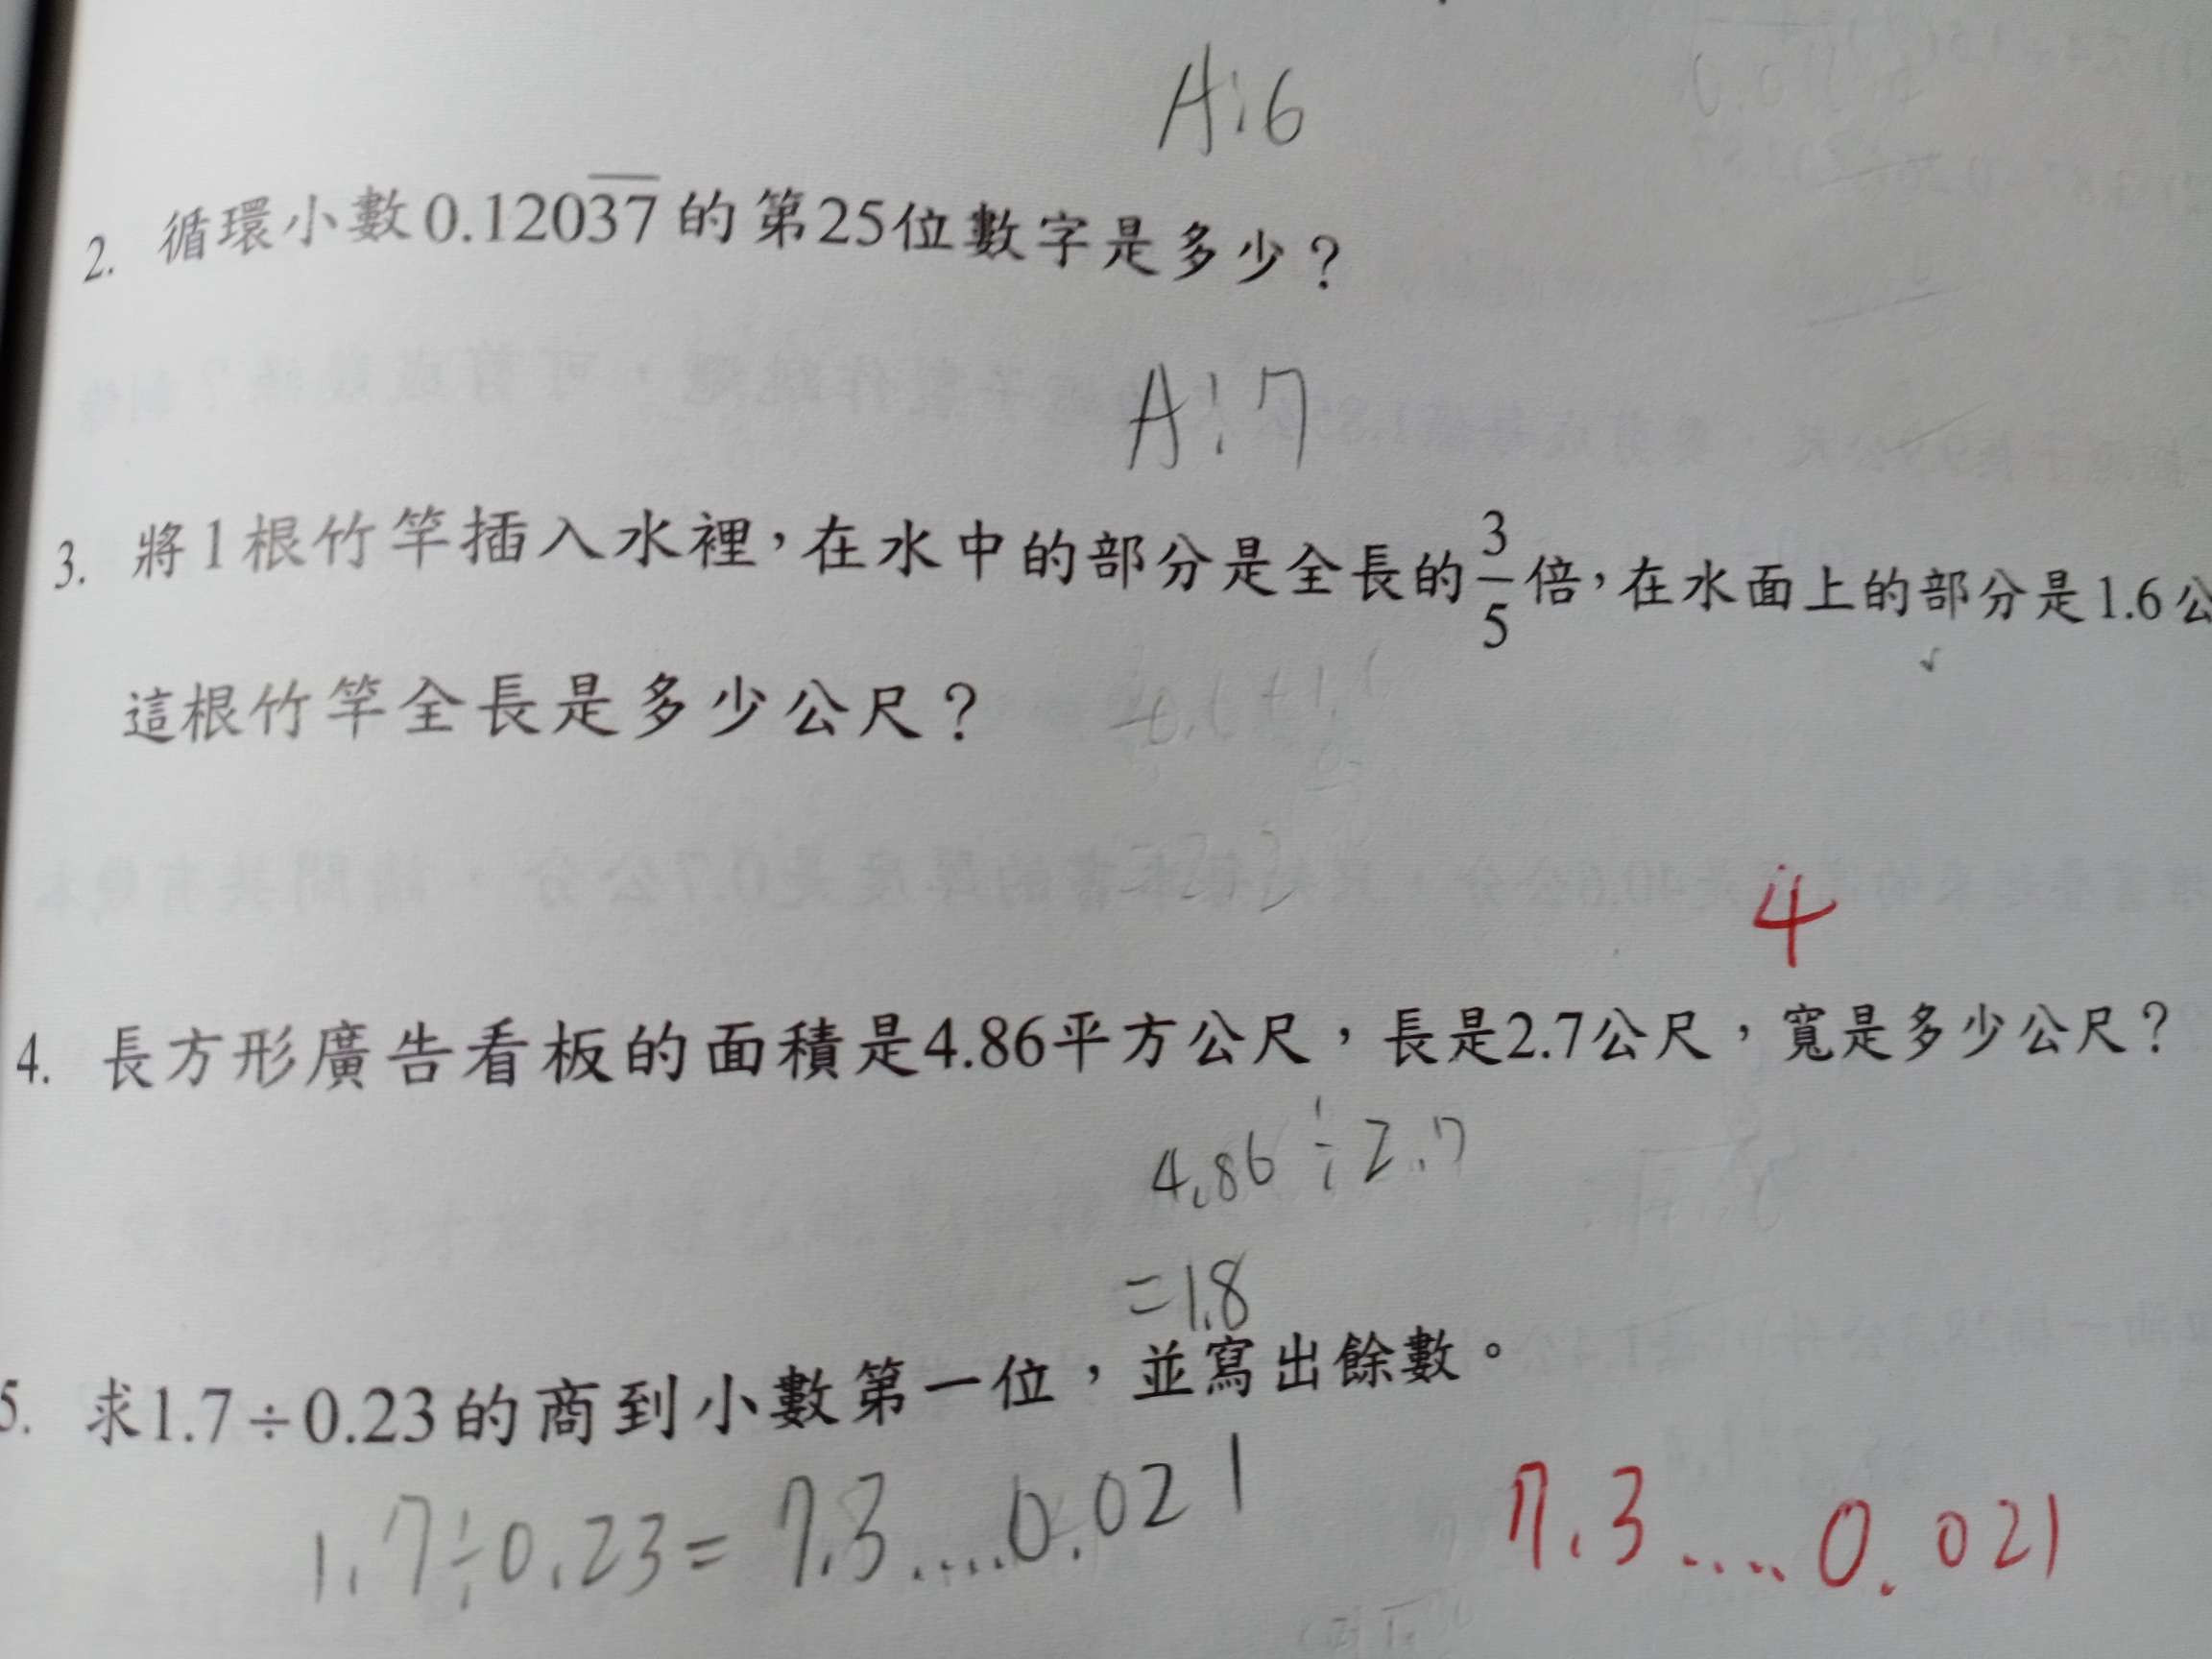 A:6
2. 循環小數0.12037的第25位數字是多少？
A:7
3. 將1根竹竿插入水裡，在水中的部分是全長的3/5倍，在水面上的部分是1.6公
這根竹竿全長是多少公尺？
4
4. 長方形廣告看板的面積是4.86平方公尺，長是2.7公尺，寬是多少公尺？
4.86÷2.7
=1.8
5. 求1.7÷0.23的商到小數第一位，並寫出餘數。
1.7÷0.23=7.3....0.021
7.3....0.021